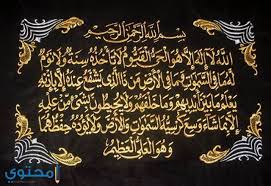 بسم الله الرحمن الرحيم
الله لا إله إلا هو الحي القيوم لا تأخذه سنة ولا نوم
له ما في السموات وما في الأرض من ذا الذي يشفع عنده إلا بإذنه
يعلم ما بين أيديهم وما خلفهم ولا يحيطون بشيء من علمه
إلا بما شاء وسع كرسيه السموات والأرض ولا يؤده حفظهما
وهو العلي العظيم
محتوى